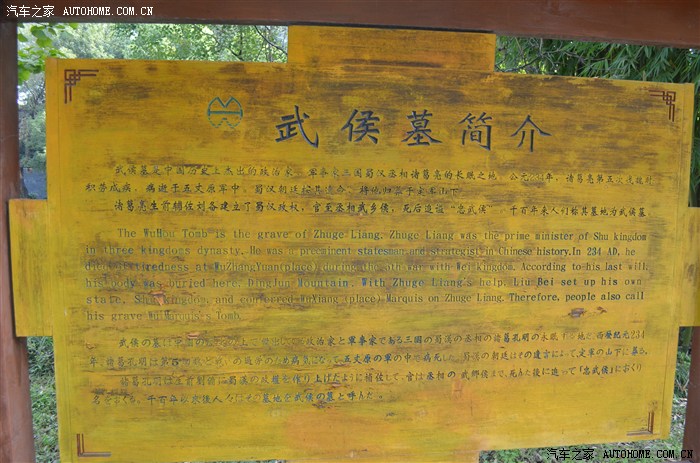 汽车之家 AUTOHOME.COM.CN
武侯墓简介
武侯墓是中国历史上杰出的政治家、军事家三国蜀汉丞相诸葛亮的长眠之地。公元234年,诸葛亮第五次伐魏时
积劳成疾,病逝于五丈原军中,蜀汉朝廷按其遗命,将他归葬于定军山下。
诸葛亮生前辅佐刘备建立了蜀汉政权,官至丞相武乡侯,死后追谥“忠武侯”,千百年来人们称其墓地为武侯墓。
The WuHou Tomb is the grave of Zhuge Liang. Zhuge Liang was the prime minister of Shu kingdom
in three kingdoms dynasty. He was a preeminent statesman and strategist in Chinese history.In 234 AD, he
died of tiredness at WuZhangYuan(place) during the 5th war with Wei kingdom. According to his last will,
his body was buried here, DingJun Mountain. With Zhuge Liang's help, Liu Bei set up his own
state, Shu kingdom, and conferred WuXiang (place) Marquis on Zhuge Liang. Therefore, people also call
his grave WuMarquis's Tomb.
武侯の墓は中国の歴史の上で傑出した政治家と軍事家である三国の蜀漢の丞相の諸葛孔明の永眠する地で、西暦紀元234
年、諸葛孔明は第五の
五丈原の軍の中で病死した、蜀漢の朝廷はその遺言によって定軍の山下に葬る。
諸葛孔明は生前劉備に蜀漢の政権を作り上げたように補佐して、官は丞相の武郷侯まで、死んだ後に追って『忠武侯』におくり
名をおくる、千百年らい後人々はその墓地を武侯の墓と呼んだ。
汽车之家 AUTOHOME.COM.CN